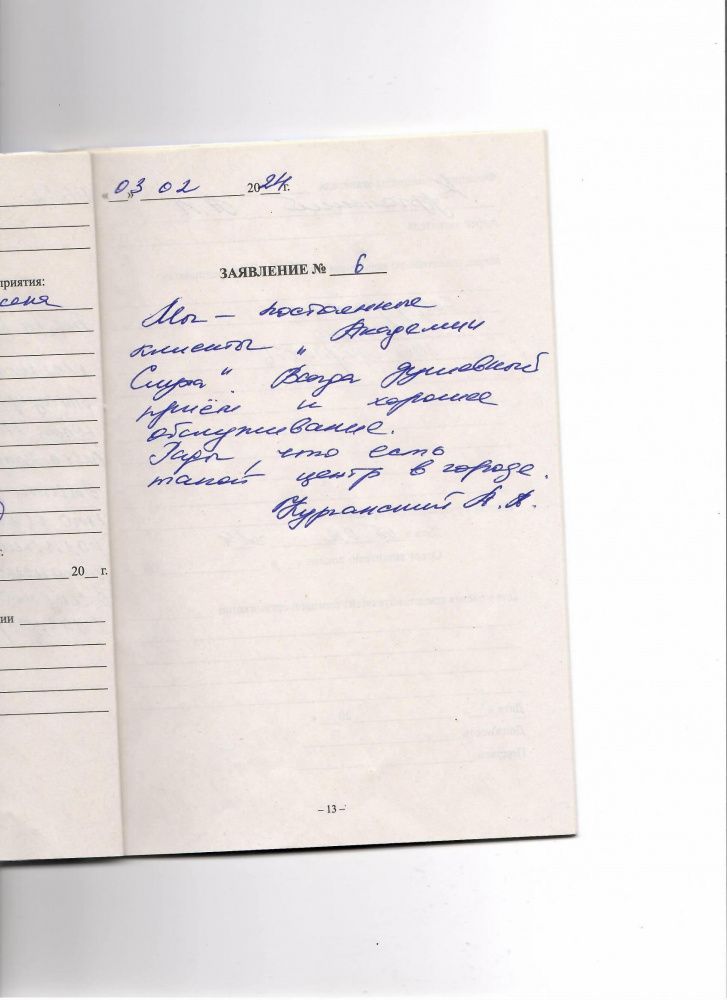 «03» 02 2024 г.
ЗАЯВЛЕНИЕ № 6
Мы – постоянные
клиенты „Академии
Слуха“. Всегда душевный
приём и хорошее
обслуживание.
Рады, что есть
такой центр в городе.
Курганский А. А.
– 13 –
приятия:
20 г.
ии